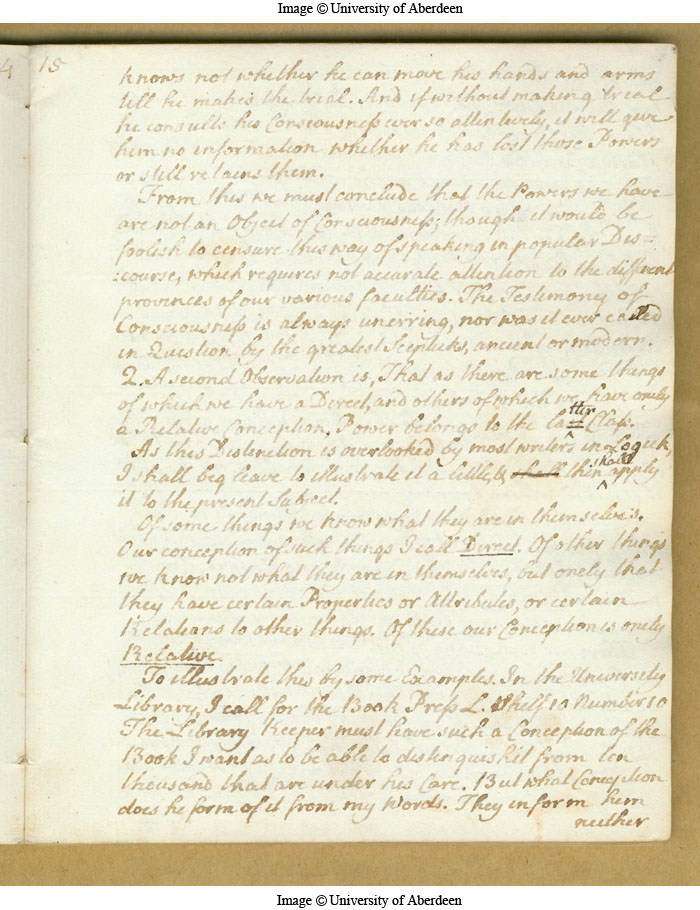 Image © University of Aberdeen
4 15
knows not whether he can move his hands and arms
till he makes the trial. And if without making trial
he consults his Consciousness ever so attentively, it will give
him no information whether he has lost those Powers
or still retains them.
From this we must conclude that the Powers we have
are not an Object of Consciousness; though it would be
foolish to censure this way of speaking in popular Dis=
:course, which requires not accurate attention to the different
provinces of our various faculties. The Testimony of
Consciousness is always unerring, nor was it ever called
in Question by the greatest Scepticks, ancient or modern.
2. A second Observation is, That as there are some things
of which we have a Direct, and others of which we have onely
a Relative Conception, Power belongs to the latter Class.
As this Distinction is overlooked by most writers in Logick,
I shall beg leave to illustrate it a little, & shall then shall apply
it to the present Subject.
Of some things we know what they are in themselves.
Our conception of such things I call Direct. Of other things
we know not what they are in themselves, but onely that
they have certain Properties or Attributes, or certain
Relations to other things. Of these our Conception is onely
Relative.
To illustrate this by some Examples. In the University
Library, I call for the Book Press L. Shelf 10 Number 10
The Library Keeper must have such a Conception of the
Book I want as to be able to distinguish it from ten
thousand that are under his Care. But what Conception
does he form of it from my Words. They inform him
neither
Image © University of Aberdeen